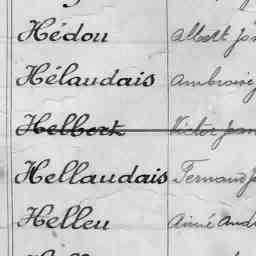 Hédou Albert
Hélaudais Ambroise
Helbert Victor Jean
Hellaudais Fernand
Helleu Aimé